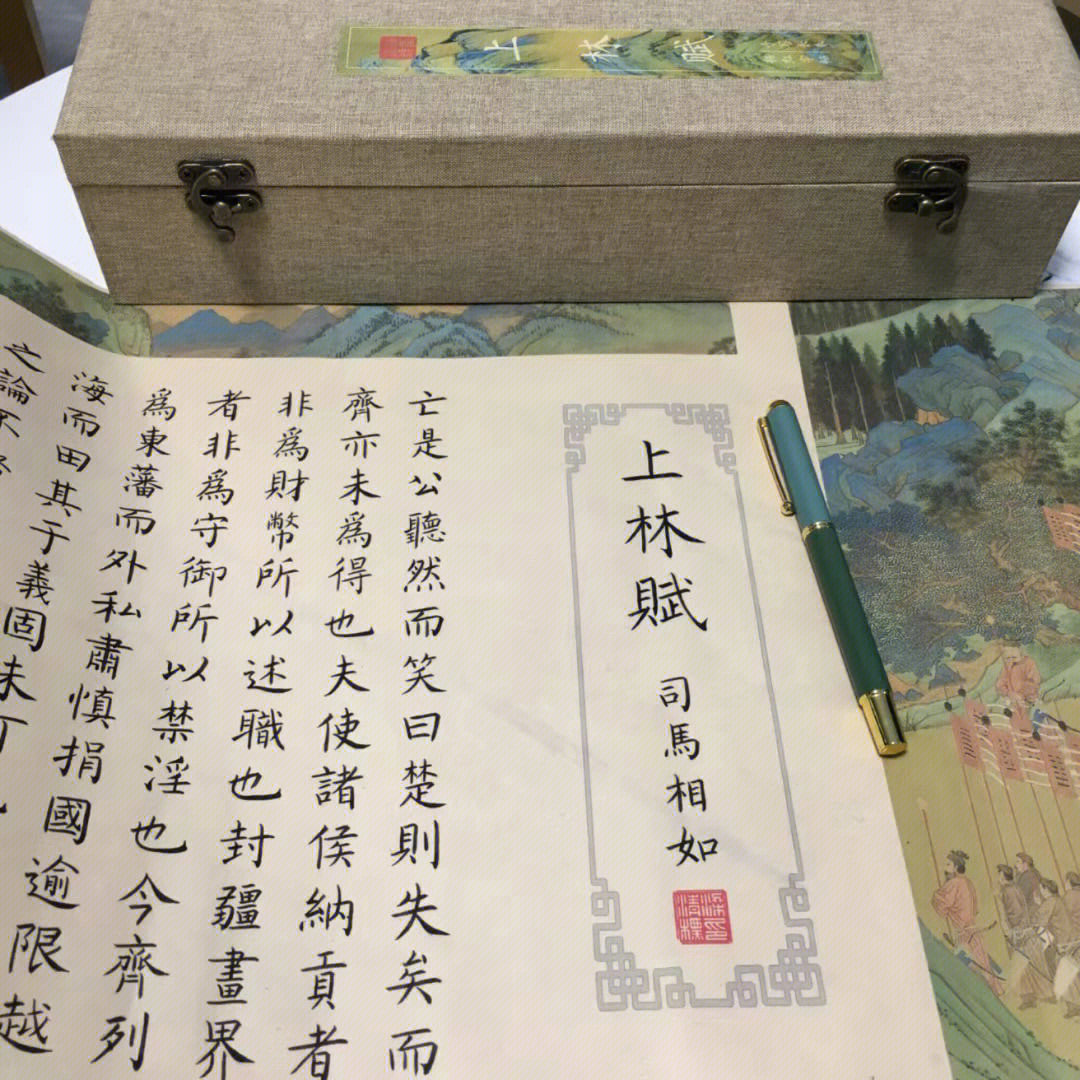 上林賦
上林賦
司馬相如
亡是公聽然而笑曰楚則失矣而
齊亦未爲得也夫使諸侯納貢者
非爲財幣所以述職也封疆畫界
者非爲守御所以禁淫也今齊列
爲東藩而外私肅慎捐國逾限越
海而田其于義固未可
之論不